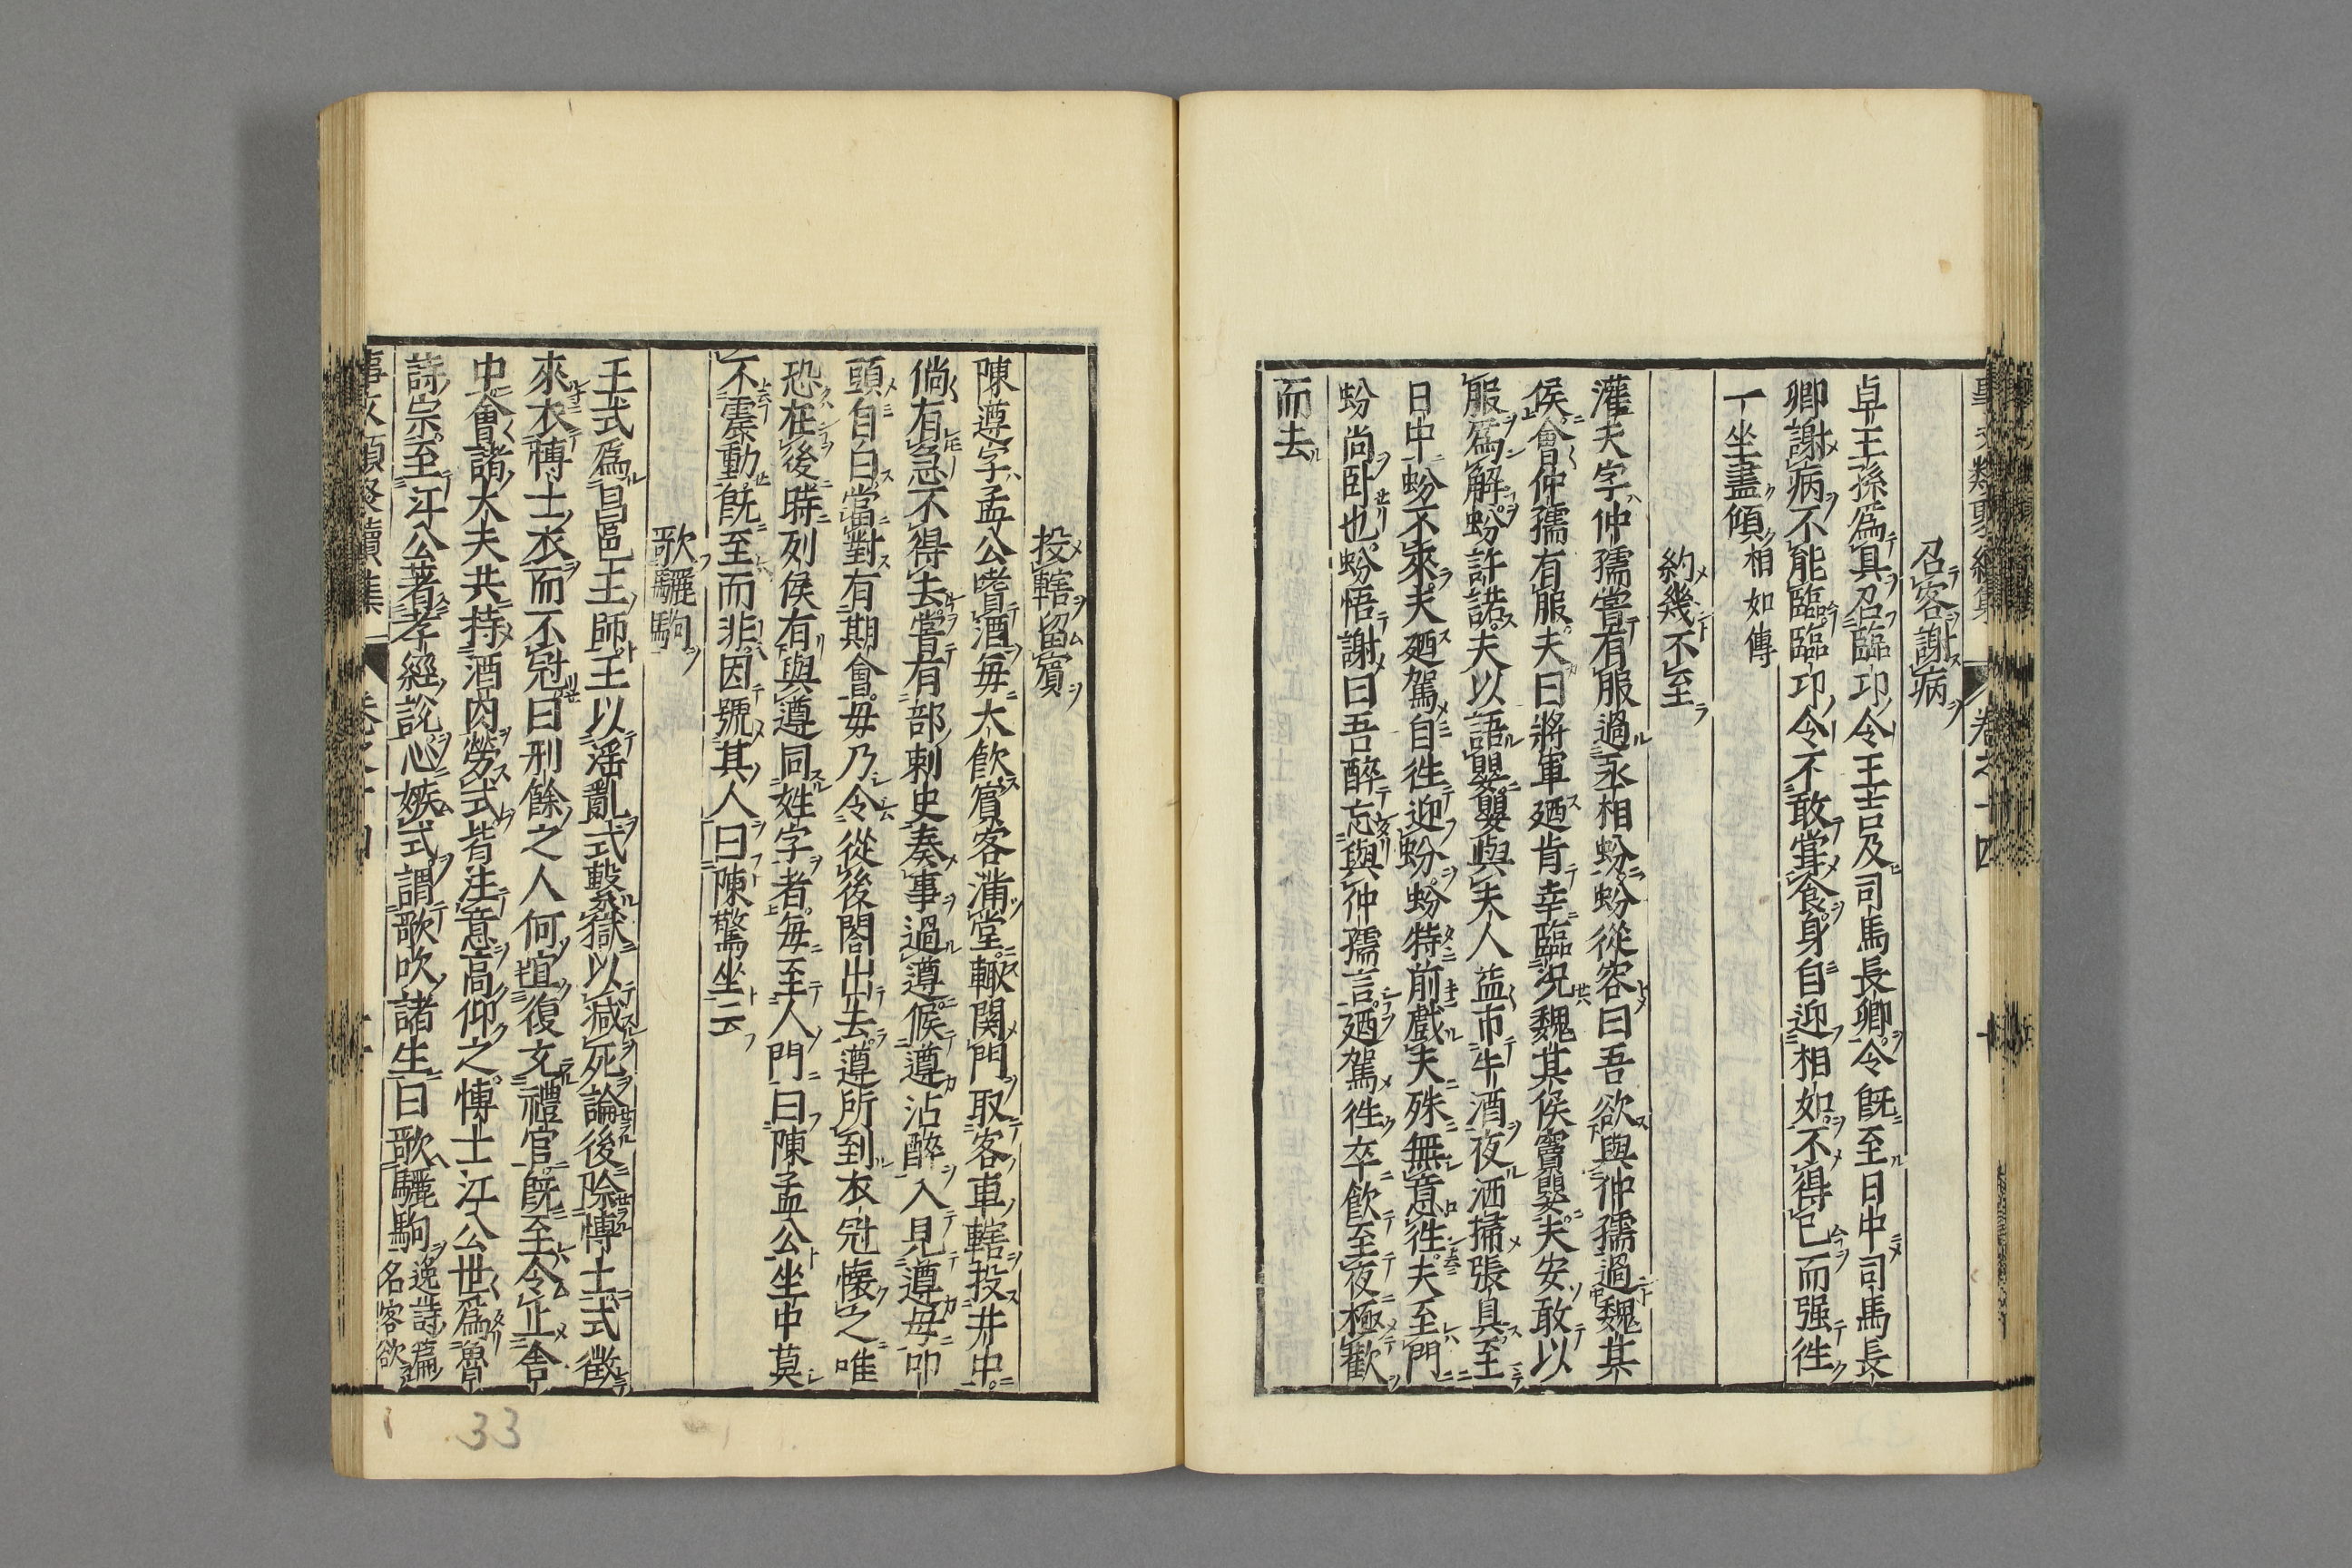 召客謝病
卓王孫爲具召臨卭令王吉及司馬長卿令既至日中司馬長
卿謝病不能臨臨卭令不敢甞食身自迎相如不得已而强徃
一坐盡傾相如傳
約幾不至
灌夫字仲孺嘗有服過丞相蚡蚡從容曰吾欲與仲孺過魏其
侯會仲孺有服夫曰將軍廼肯幸臨況魏其侯竇嬰夫安敢以
服爲解蚡許諾夫以語嬰嬰與夫人益市牛酒夜洒掃張具至
日中蚡不來夫廼駕自徃迎蚡蚡特前戲夫殊無意徃夫至門
蚡尚卧也蚡悟謝曰吾醉忘與仲孺言廼駕徃卒飲至夜極歡
而去
投轄留賓
陳遵字孟公嗜酒每大飲賓客滿堂輙関門取客車轄投井中
倘有急不得去嘗有部刺史奏事過遵候遵沾醉入見遵母叩
頭自白當對有期會毋乃令從後閤出去遵所到衣冠懷之唯
恐在後時列侯有與遵同姓字者每至人門曰陳孟公坐中莫
不震動既至而非因號其人曰陳驚坐云
歌驪駒
王式爲昌邑王師王以滛亂式繫獄以减死論後除博士式徴
來衣博士衣而不冠曰刑餘之人何宜復充禮官既至令止舍
中會諸大夫共持酒肉勞式皆注意高仰之博士江公世爲魯
詩宗至江公著孝經說心嫉式謂歌吹諸生曰歌驪駒逸詩篇
名客欲
事文類聚續集 卷之十四
33